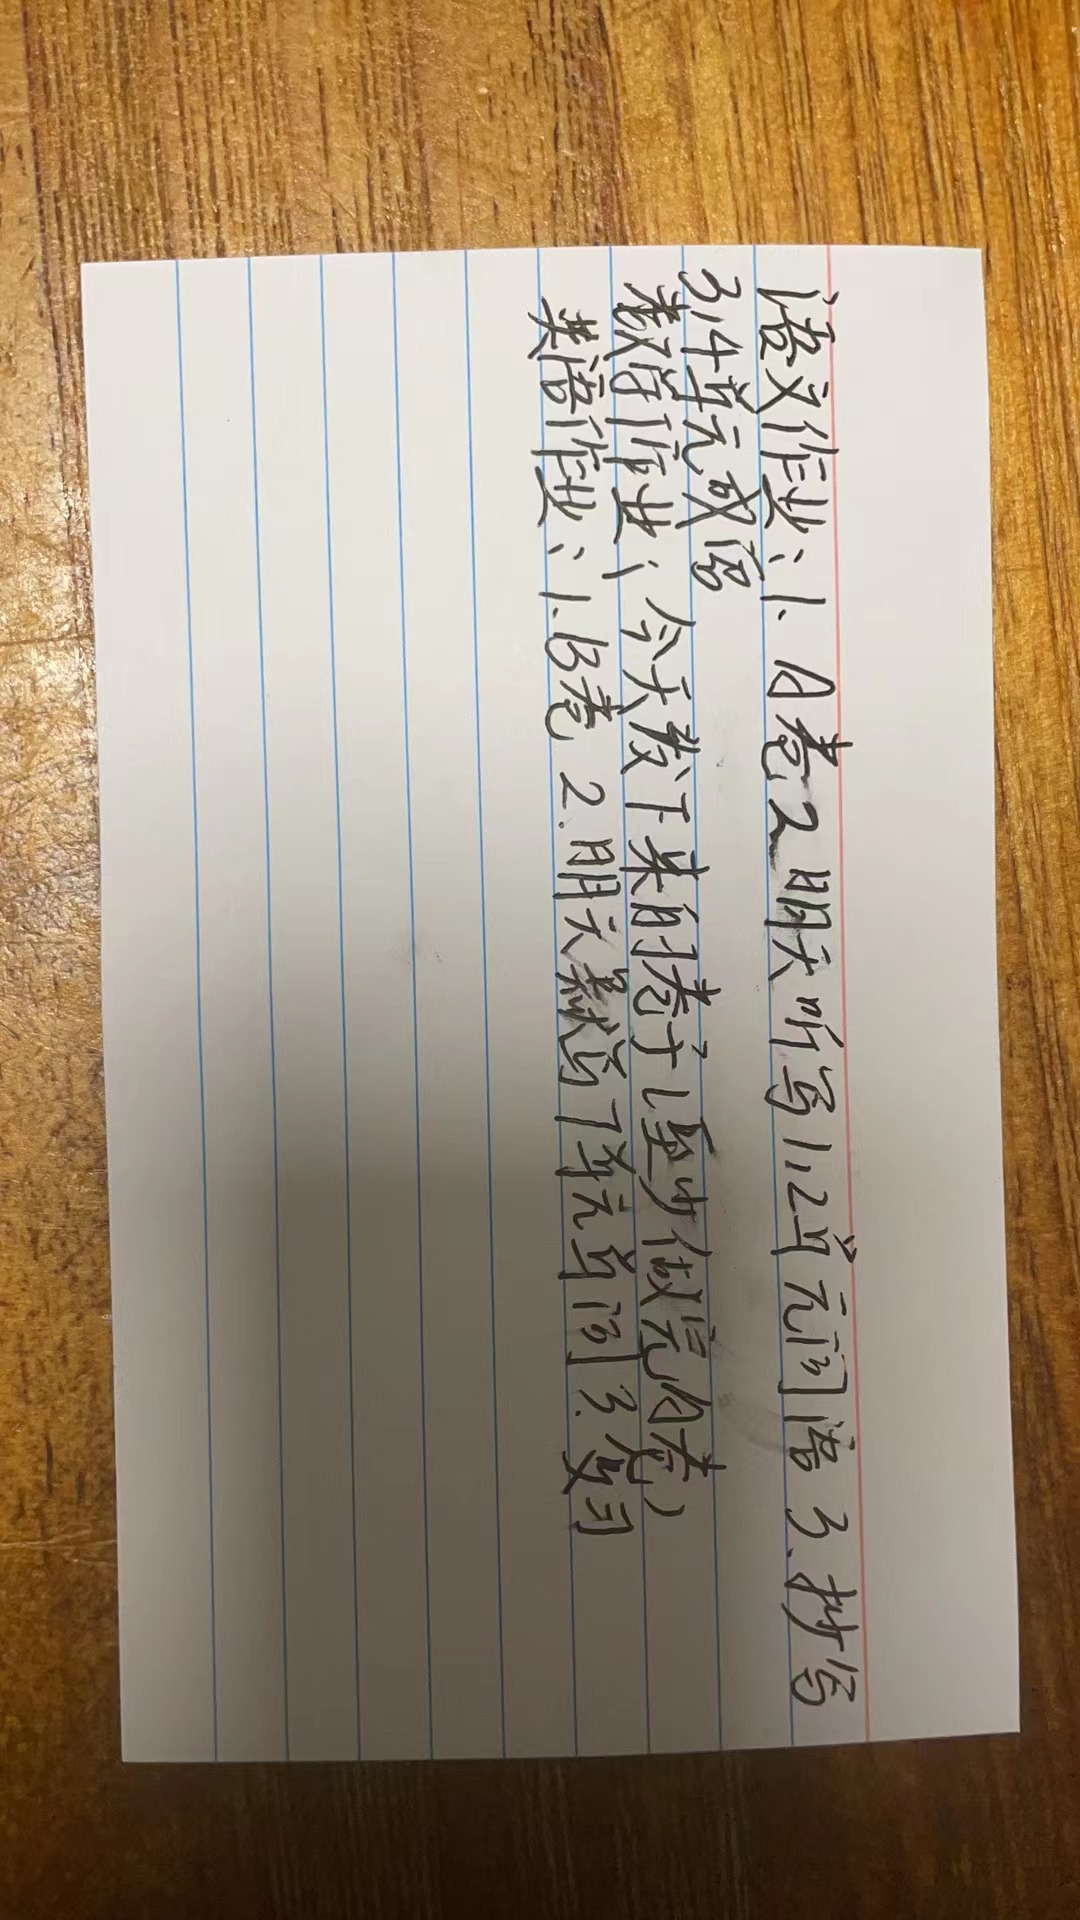 语文作业:1. A卷 2 明天听写1,2单元词语 3. 抄写
3,4单元成语
数学作业: 今天发下来的卷子(至少做完A卷)
英语作业:1.B卷 2.明天默写7单元单词 3.复习